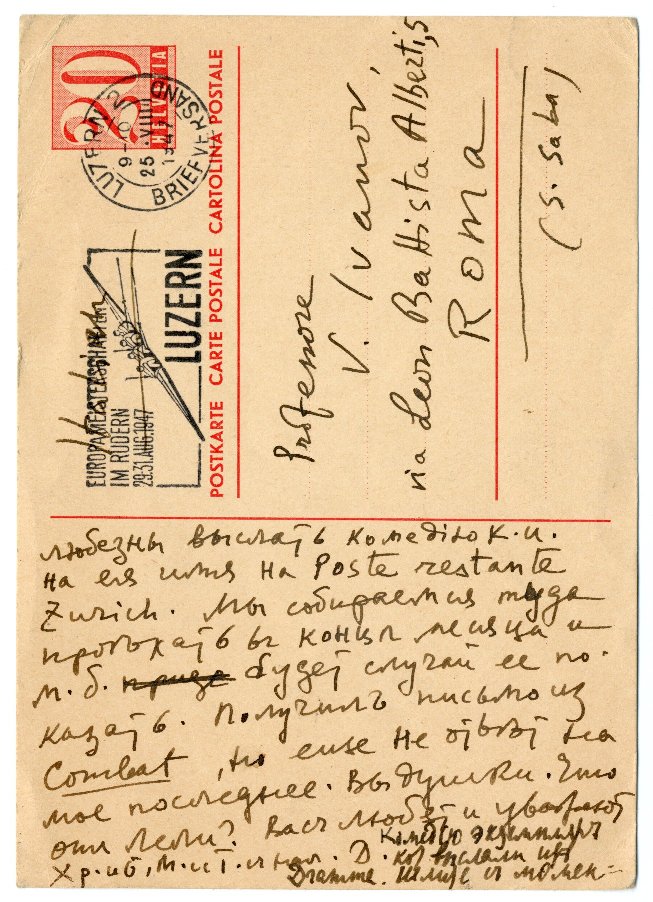 HELVETIA
20
LUZERN 2
25.VIII
1947
BRIEFVERSAND
EUROPAMEISTERSCHAFTEN
IM RUDERN
29.-31.AUG.1947
LUZERN
POSTKARTE CARTE POSTALE CARTOLINA POSTALE
Professore
V. Ivanov,
via Leon Battista Alberti, 5
ROMA
(S. Saba)
любезны выслать комедію К. И.
на ея имя на Poste restante
Zurich. Мы собираемся туда
проѣхать въ концѣ месяца и
м. б. будет случай ее по-
казать. Получилъ письмо из
Combat, но еще не отвѣт на
мое последнее. Вы душки. Что
они Лели? Васъ любят и уважают
Хр. и б, М. и Т. и
экземпляръ
выслали
Dramme.